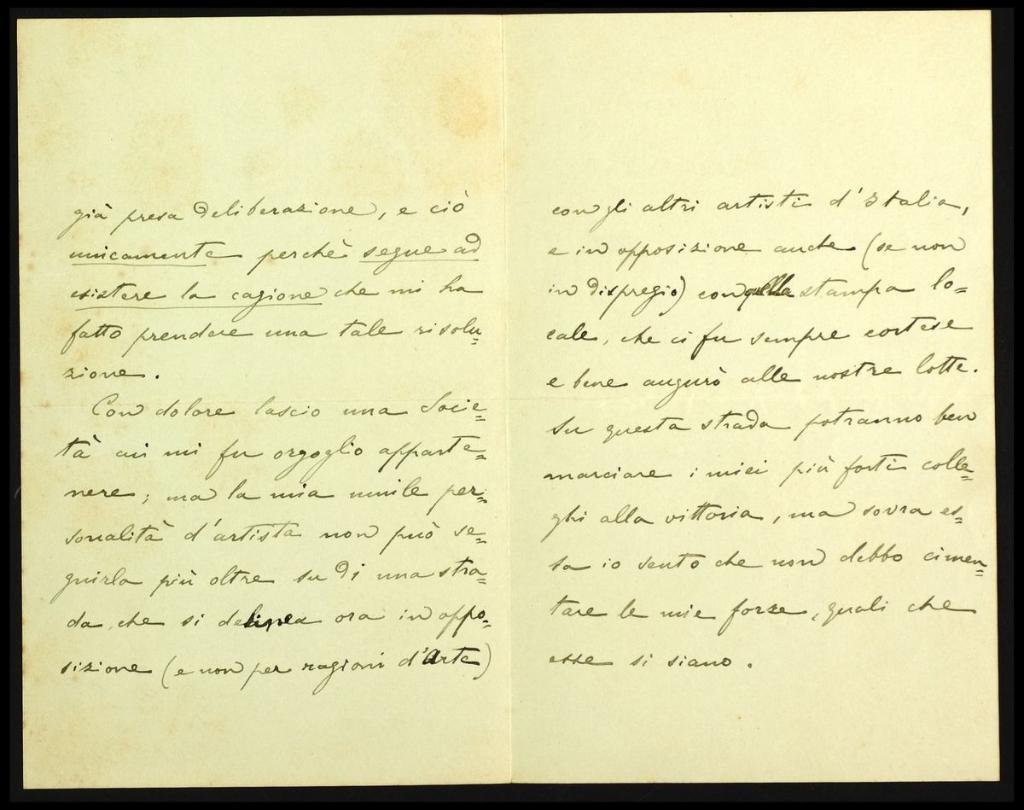 già presa deliberazione, e ciò
unicamente perchè segue ad
esistere la cagione che mi ha
fatto prendere una tale risolu=
zione.
Con dolore lascio una Socie=
tà cui mi fu orgoglio apparte=
nere; ma la mia umile per=
sonalità d'artista non può se=
guirla più oltre su di una stra=
da, che si delinea ora in oppo=
sizione (e non per ragioni d'Arte)
con gli altri artisti d'Italia,
e in opposizione anche (se non
in dispregio) con quella stampa lo=
cale, che ci fu sempre cortese
e bene augurò alle nostre lotte.
Su questa strada potranno ben
marciare i miei più forti colle=
ghi alla vittoria, ma sovra es=
sa io sento che non debbo cimen=
tare le mie forze, quali che
esse si siano.